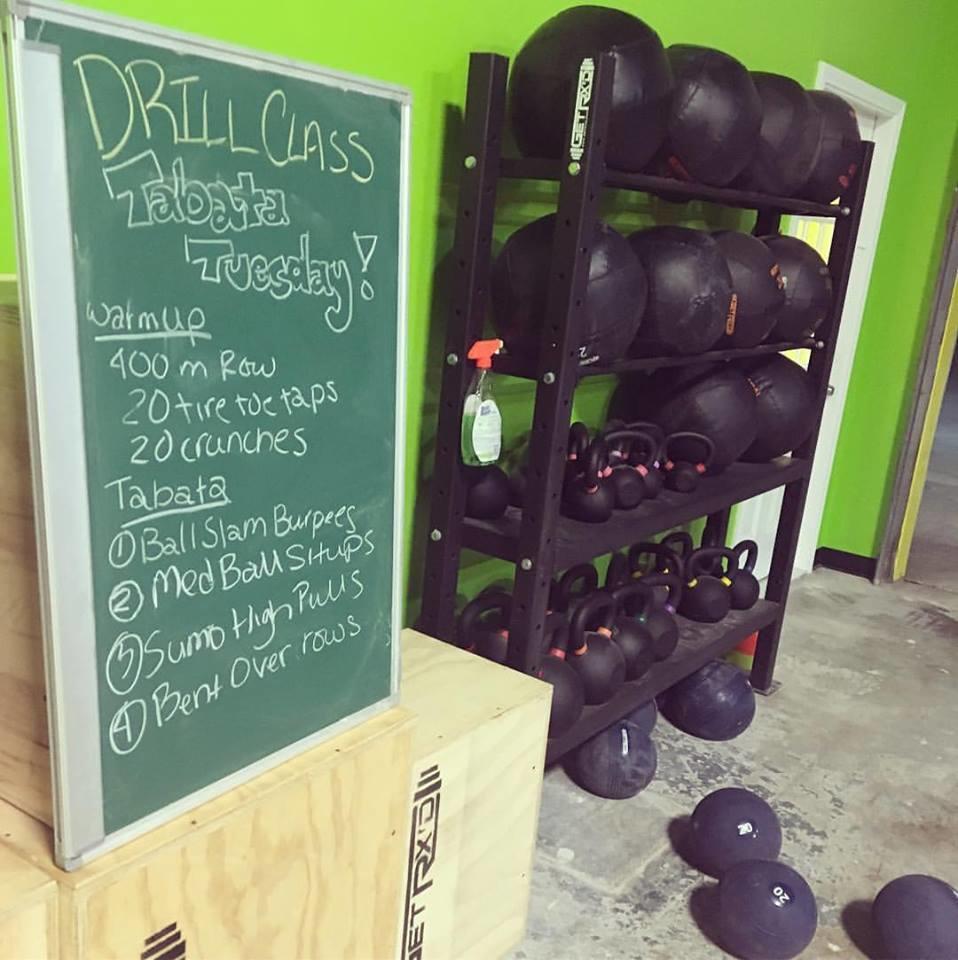 DRILL CLASS
Tabata
Tuesday!
warmup
400 m Row
20 tire toe taps
20 crunches
Tabata
① Ball Slam Burpees
② Med Ball Situps
③ Sumo High Pulls
④ Bent Over rows
GET RX'D
GET RX'D
20
20